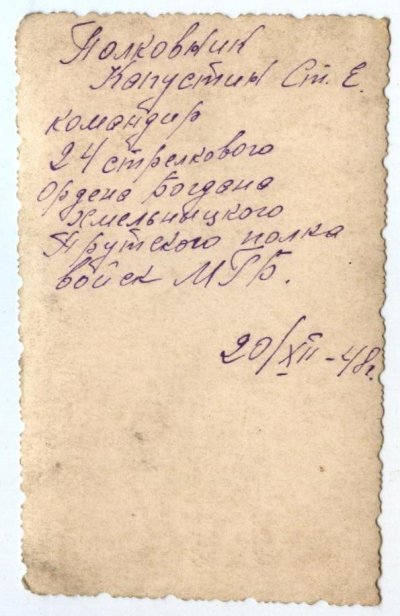 Полковник
Капустин Ст. Е.
командир
24 стрелкового
Ордена Богдана
Хмельницкого
Прутского полка
войск МГБ.
20/XII-48г.